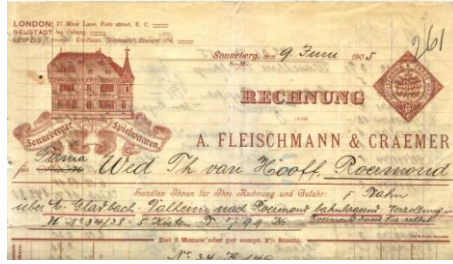 LONDON: 21 Moor Lane, Fore street, E. C.
NEUSTADT bei Coburg.
LEIPZIG
Sonneberg, den 9. Juni 1905
S.-M.
261
RECHNUNG
VON
Sonneberger Spielwaaren.
A. FLEISCHMANN & CRAEMER
Firma
für Wed Th van Hooff, Roermond
Sandten Ihnen für Ihre Rechnung und Gefahr: p. Bahn
über M. Gladbach - Dalheim nach Roermond bahnlagernd. Verzollung in
Roermond
Ziel 3 Monate oder per compt. 2% Sconto.